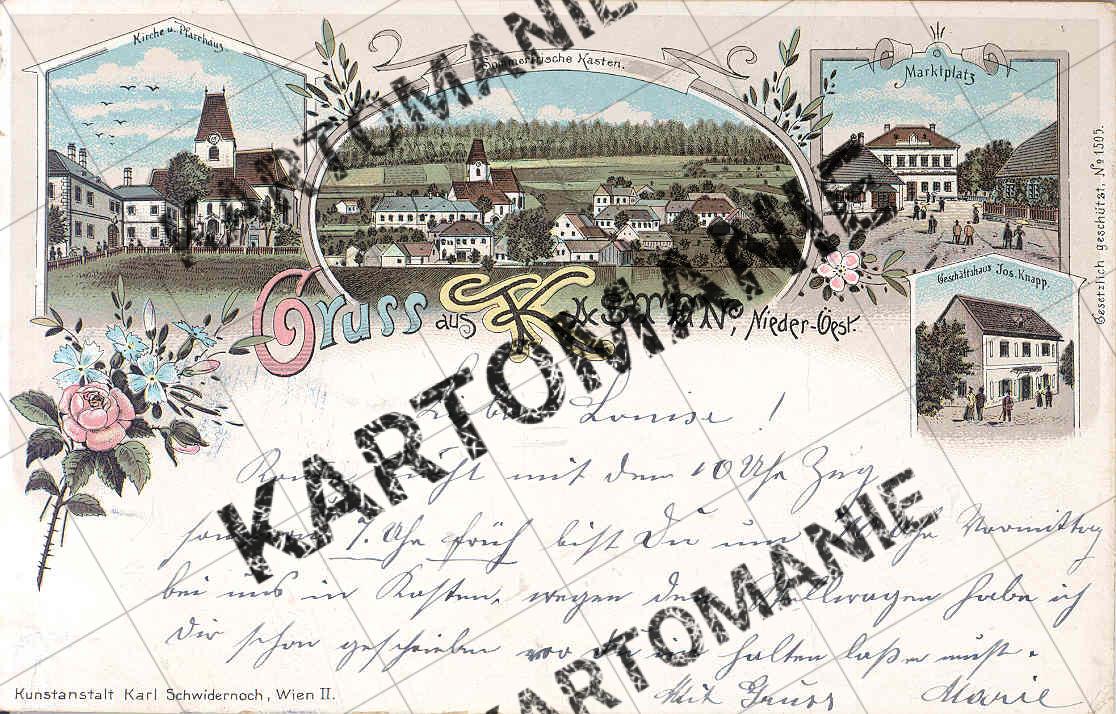 Kirche u. Pfarrhaus.
Sommerfrische Kasten.
Marktplatz
Gesetzlich geschützt. No 1505.
Geschäftshaus Jos. Knapp.
Gruss aus Kasten, Nieder-Öest.
Louise!
nicht mit dem 10 Uhr Zug
7. Uhr früh bist Du um Uhr Vormittag
bei uns in Kasten, wegen dem Stellwagen habe ich
Dir schon geschrieben wo Du halten laßen mußt.
Mit Gruss Marie
Kunstanstalt Karl Schwidernoch, Wien II.
KARTOMANIE
KARTOMANIE
KARTOMANIE
KARTOMANIE